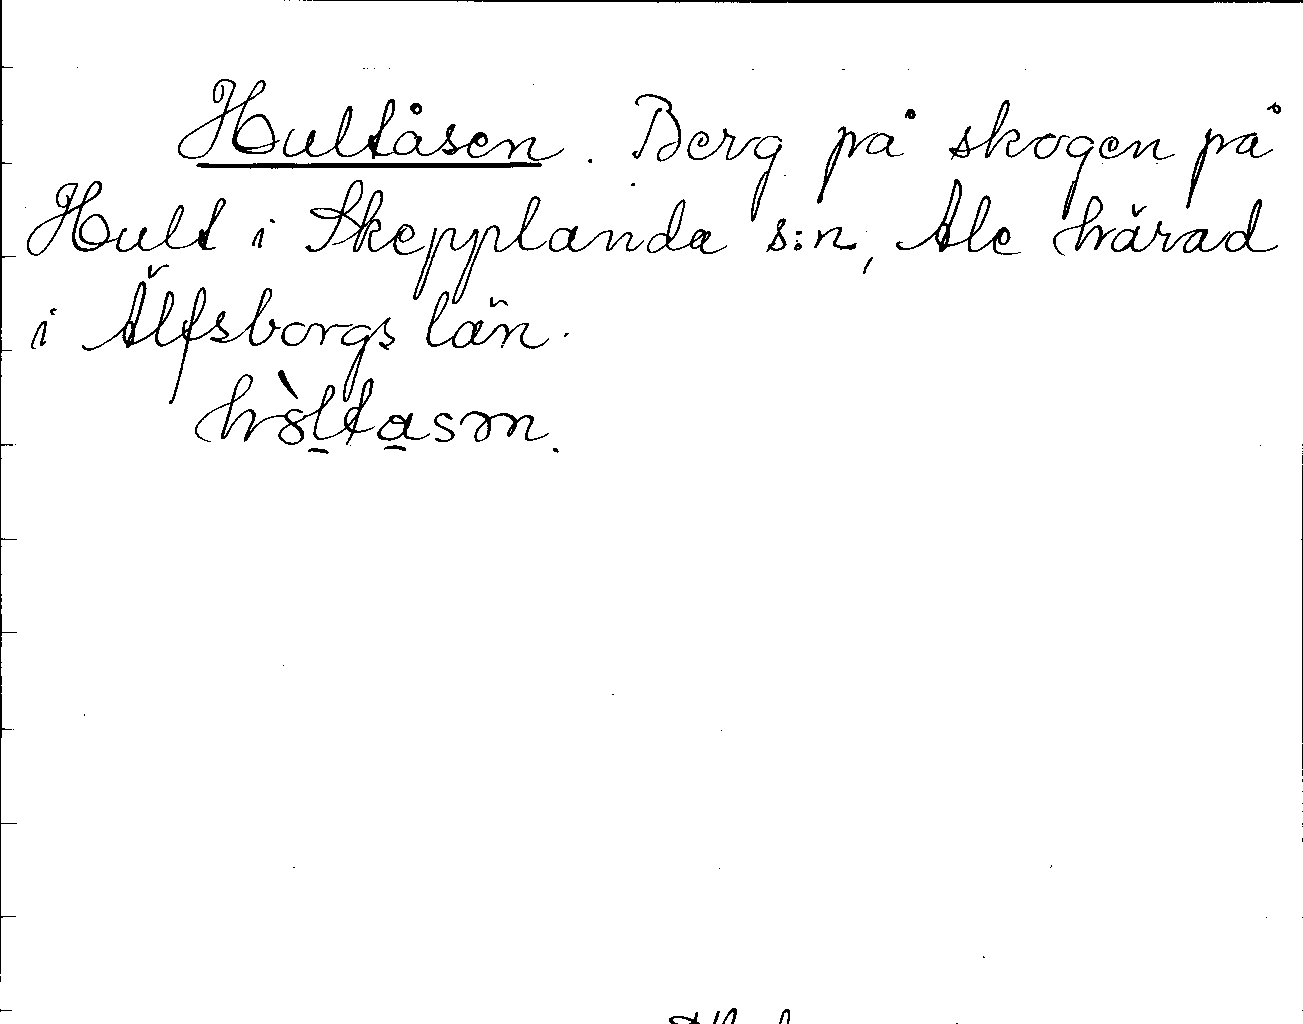 Hultåsen. Berg på skogen på
Hult i Skepplanda s:n, Ale härad
i Älfsborgs län.
hòl̠ta̠sən.